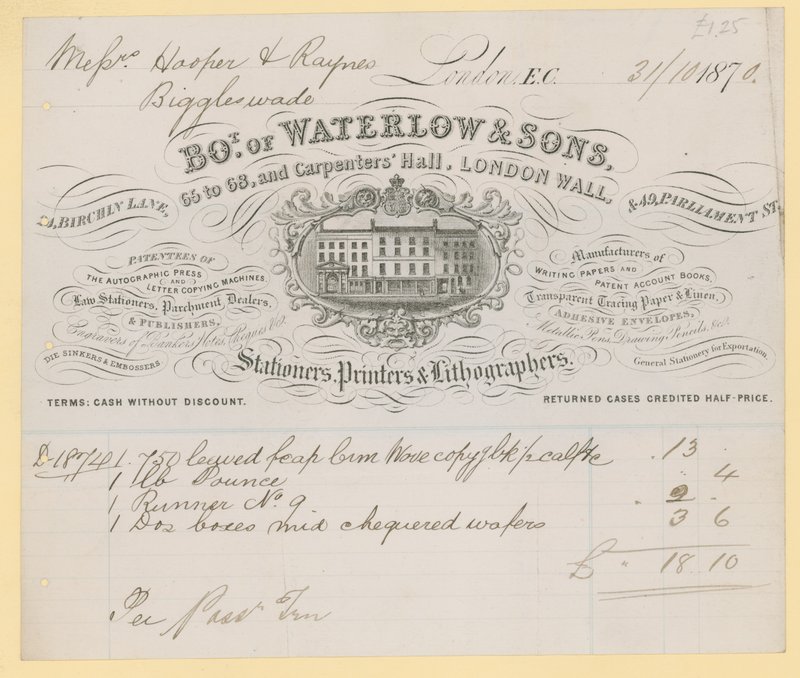 £1.25
Messrs. Hooper & Raynes
Biggleswade
London, E.C. 31/10 1870.
BOT. OF WATERLOW & SONS,
65 to 68, and Carpenters' Hall, LONDON WALL,
24, BIRCHIN LANE,
& 49, PARLIAMENT ST.
PATENTEES OF
THE AUTOGRAPHIC PRESS
AND
LETTER COPYING MACHINES.
Law Stationers, Parchment Dealers,
& PUBLISHERS,
Engravers of Bankers Notes, Cheques &ct.
DIE SINKERS & EMBOSSERS
Manufacturers of
WRITING PAPERS AND
PATENT ACCOUNT BOOKS,
Transparent Tracing Paper & Linen,
ADHESIVE ENVELOPES,
Metallic Pens, Drawing Pencils, &ct.
General Stationery for Exportation.
Stationers, Printers & Lithographers.
TERMS: CASH WITHOUT DISCOUNT.
RETURNED CASES CREDITED HALF-PRICE.
D 18074 1 750 leaved fcap Crm Wove copyg bk 1/2 calf &c . 13 .
1 lb Pounce " 4
1 Runner No. 9 . 2 .
1 Doz boxes mid chequered wafers 3 6
£ " 18 10
Per Passr Trn